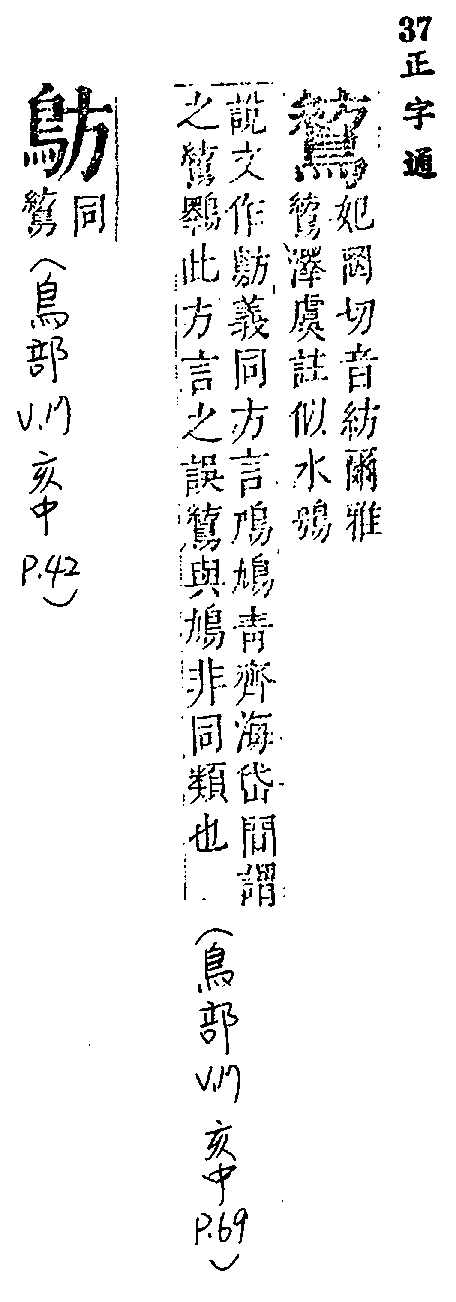 37正字通
鶭
妃罔切音紡爾雅
鶭澤虞註似水鴞
說文作鴋義同方言鳲鳩青齊海岱間謂
之鶭鸅此方言之誤鶭與鳩非同類也
(鳥部 V.17 亥中 P.69)
鴋
同
鶭
(鳥部 V.17 亥中 P.42)